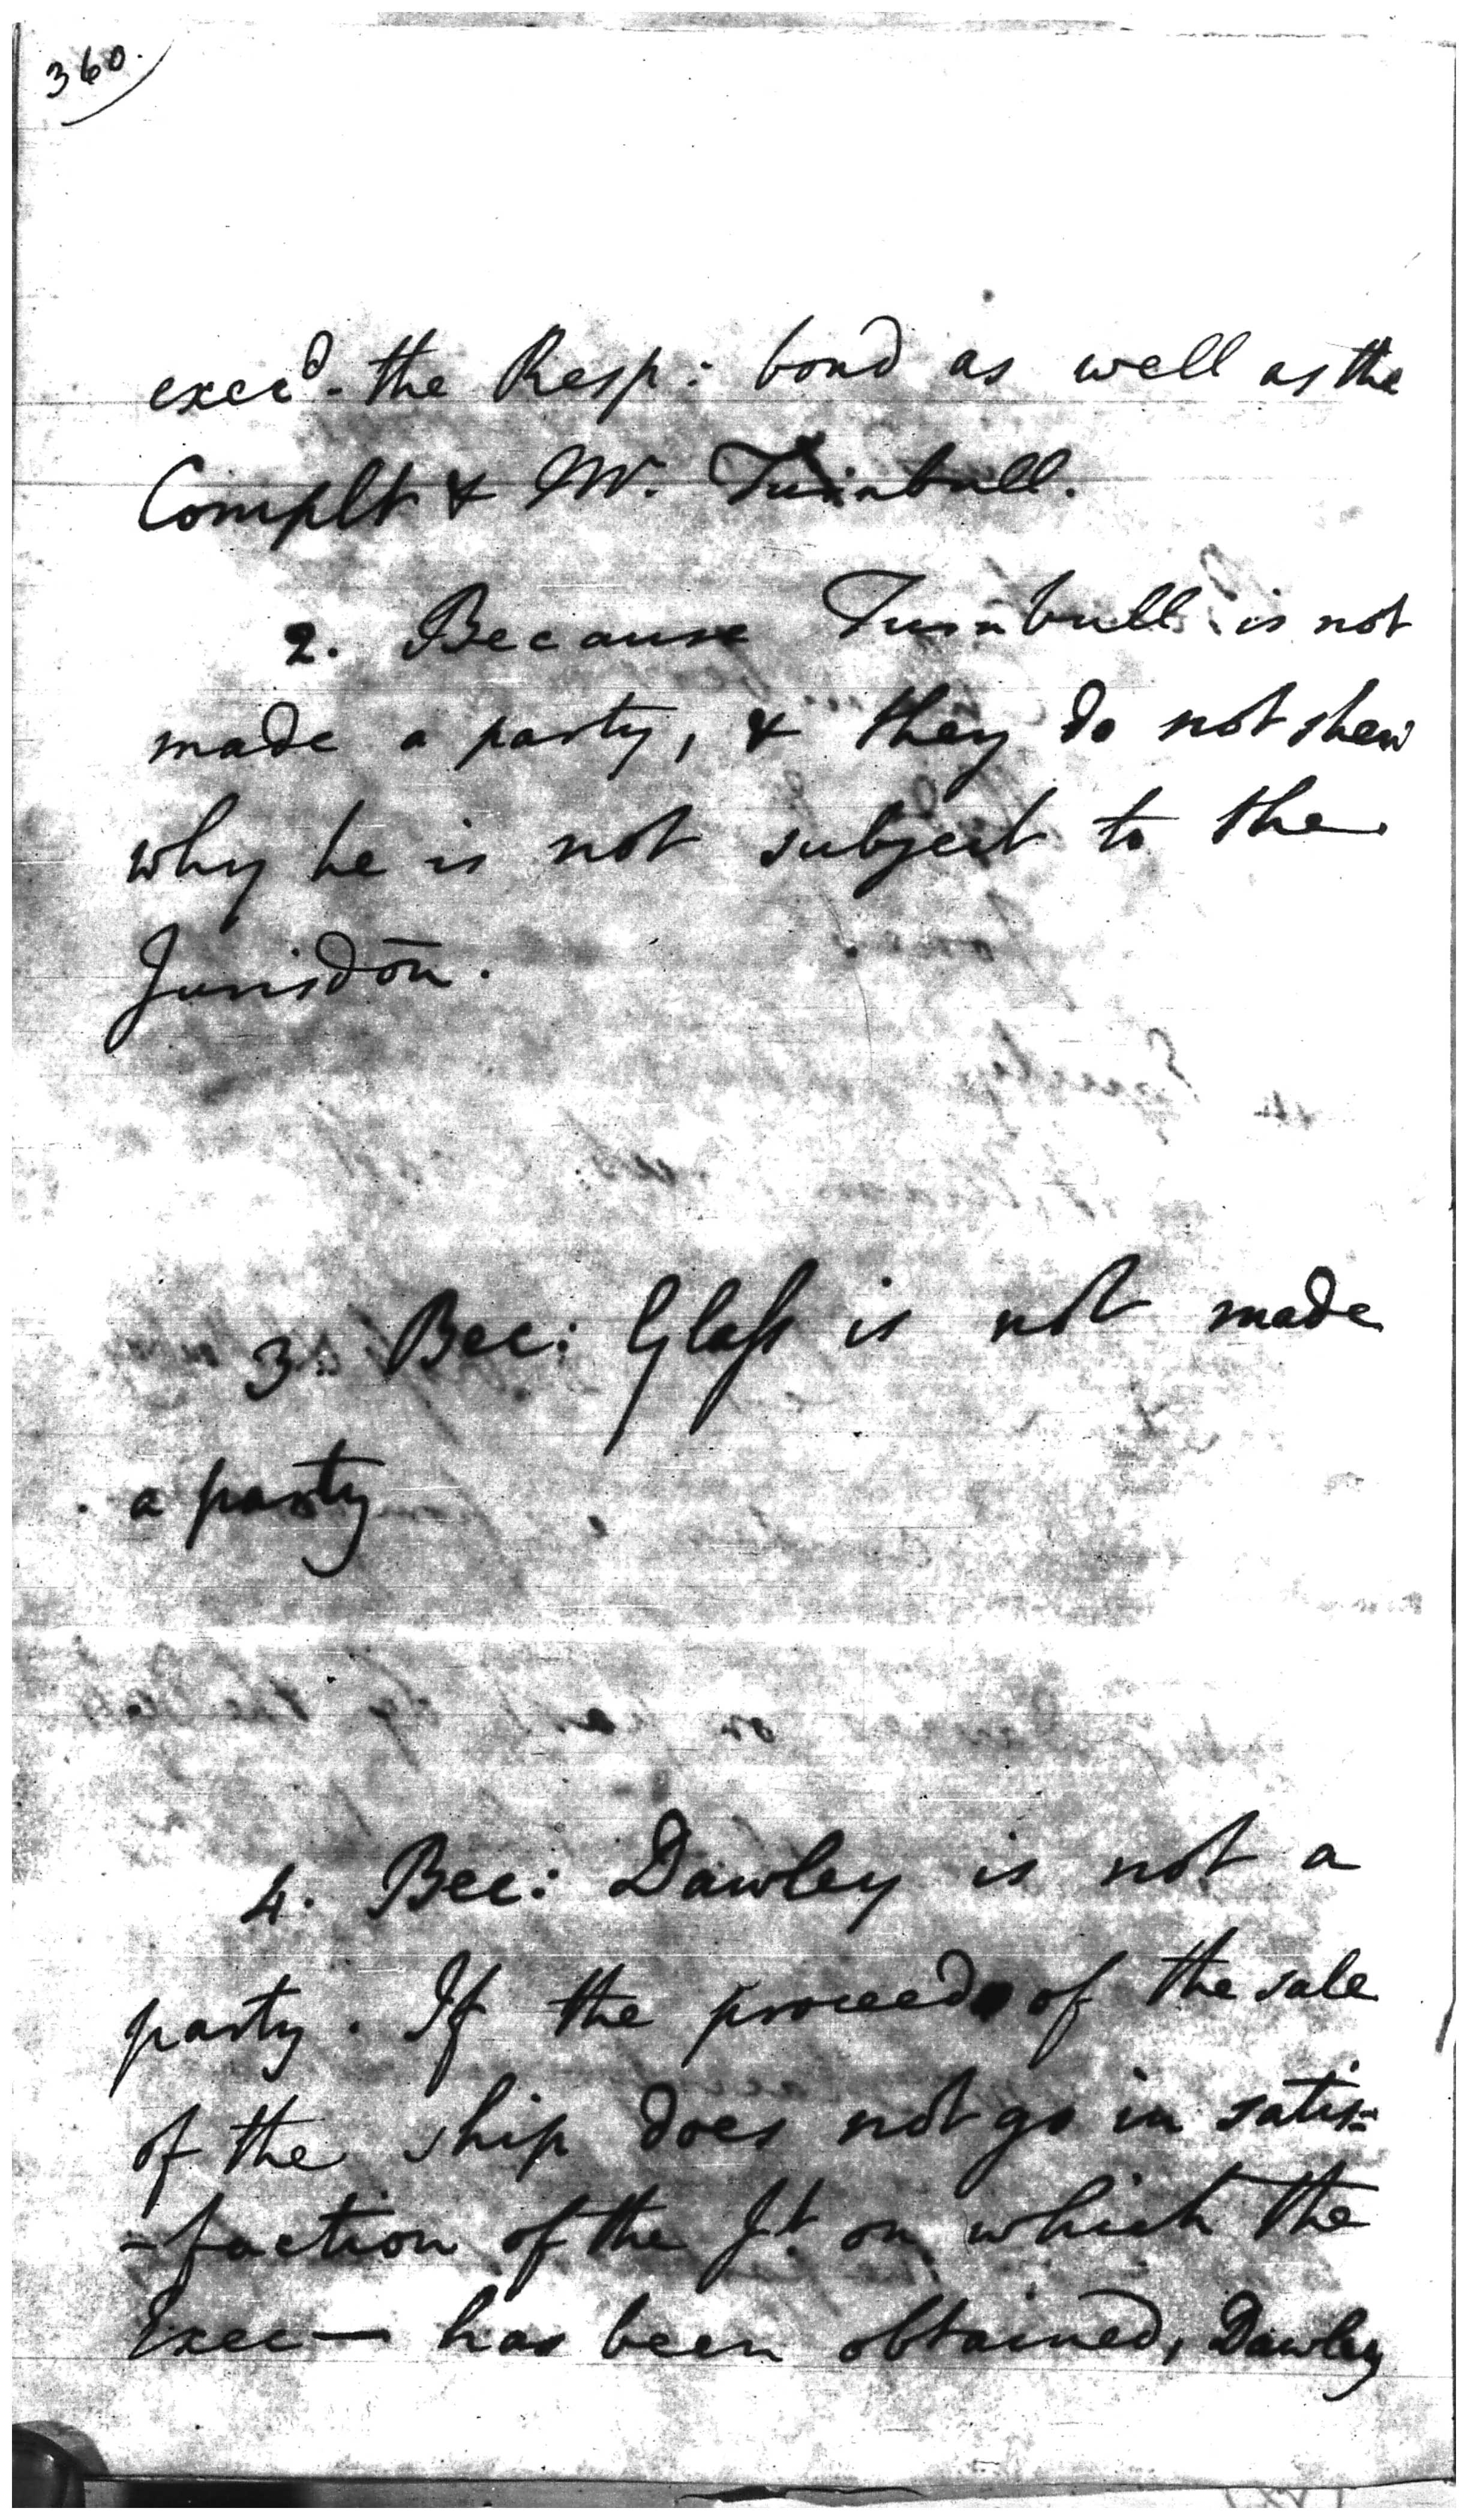 360.
execd. the Resp: bond as well as the
Complt & W. Turnbull.
2. Because Turnbull is not
made a party, & they do not shew
why he is not subject to the
Jurisdon.
3. Bec: Glass is not made
a party
4. Bec: Dawley is not a
party. If the proceeds of the sale
of the ship does not go in satis=
=faction of the Jt. on which the
Exec— has been obtained, Dawley